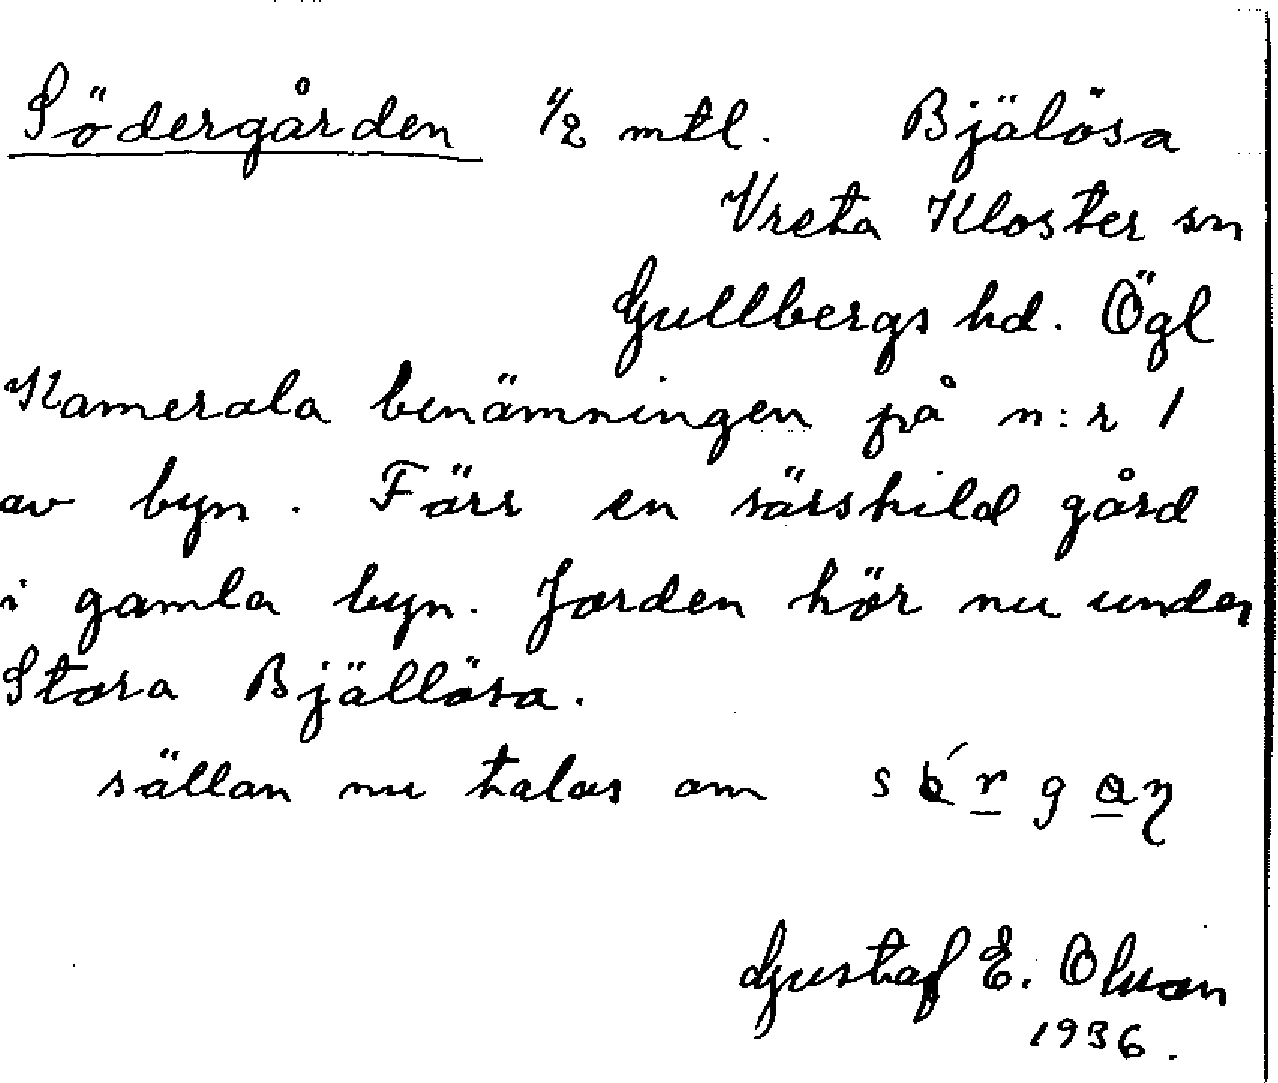 Södergården 1/2 mtl. Bjälösa
Vreta Kloster sn
Gullbergs hd. Ögl
Kamerala benämningen på n:r 1
av byn. Förr en särskild gård
i gamla byn. Jorden hör nu under
Stora Bjällösa.
sällan nu talas om
Gustaf E. Olsson
1936.